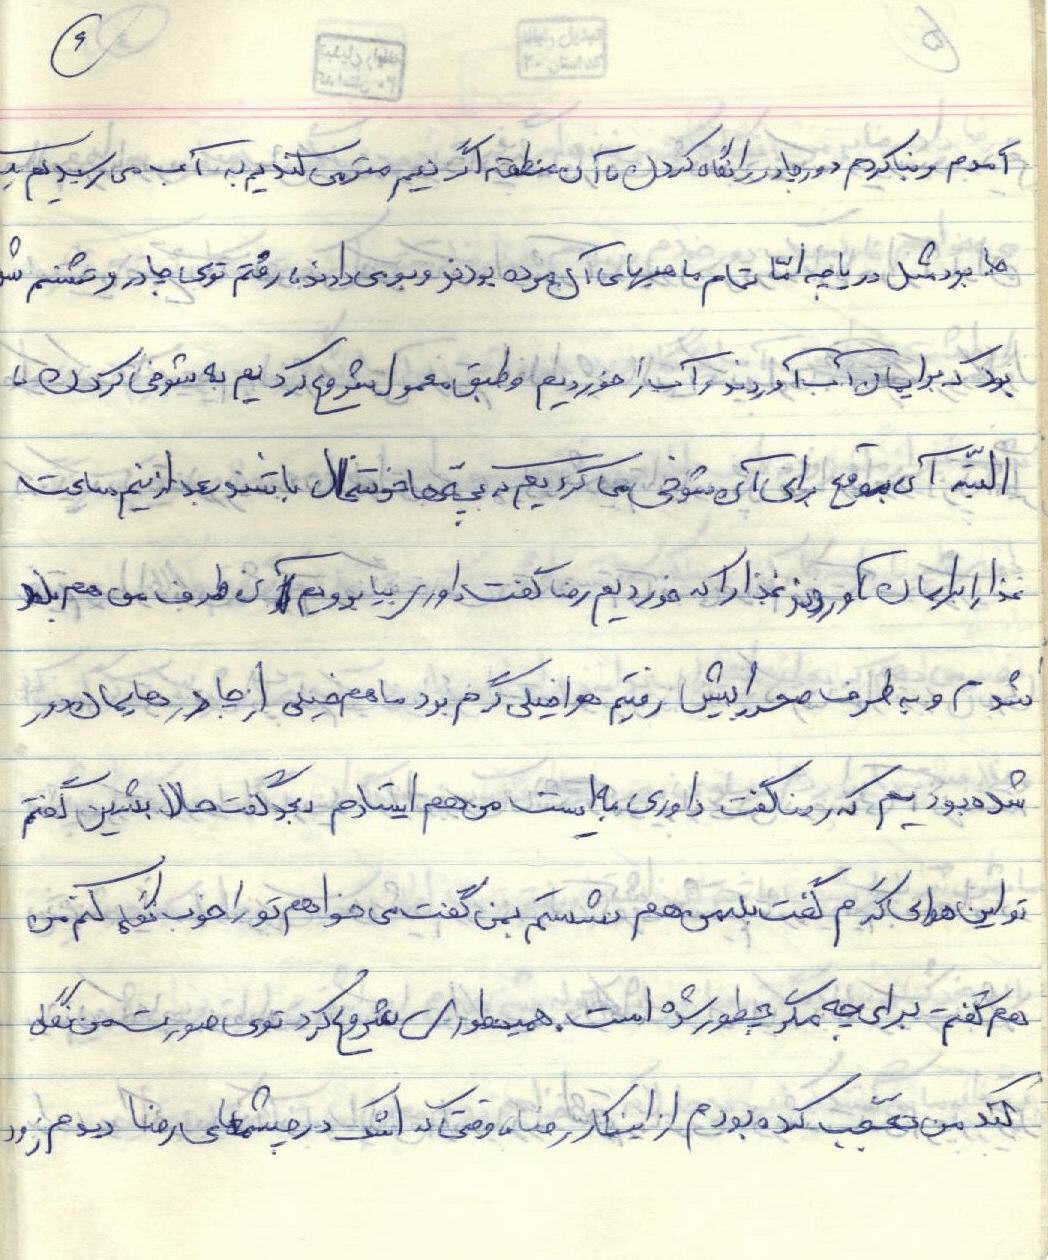 ۶
آمدم و بنا کردم دور چادر را نگاه کردن تا آن منطقه اگر نیم متر می کندیم به آب می رسیدیم یک
جا بود مثل دریاچه امّا تمام ماهیهای آن مرده بودند و بوی می دادند، رفتم توی چادر و تشنم شده
بود که برایمان آب آوردند و آب را خوردیم و طبق معمول شروع کردیم به شوخی کردن تا
البتّه آن موقع برای آن شوخی می کردیم که بچّه ها خوشحال باشند بعد از نیم ساعت
غذا را برایمان آوردند غذا را که خوردیم رضا گفت داوری بیا برویم آن طرف من هم بلند
شدم و به طرف صحرا پیش رفتیم هوا خیلی گرم بود ما هم خیلی از چادرهایمان دور
شده بودیم که رضا گفت داوری به ایست من هم ایستادم بعد گفت حالا بشین گفتم
تو این هوای گرم گفت بله من هم نشستم بمن گفت می خواهم تو را خوب نگاه کنم من
هم گفتم برای چه مگر چطور شده است. همینطوری شروع کرد توی صورت من نگاه
کند من تعجب کرده بودم از اینکار رضا، وقتی که اشک در چشمهای رضا دیدم زود